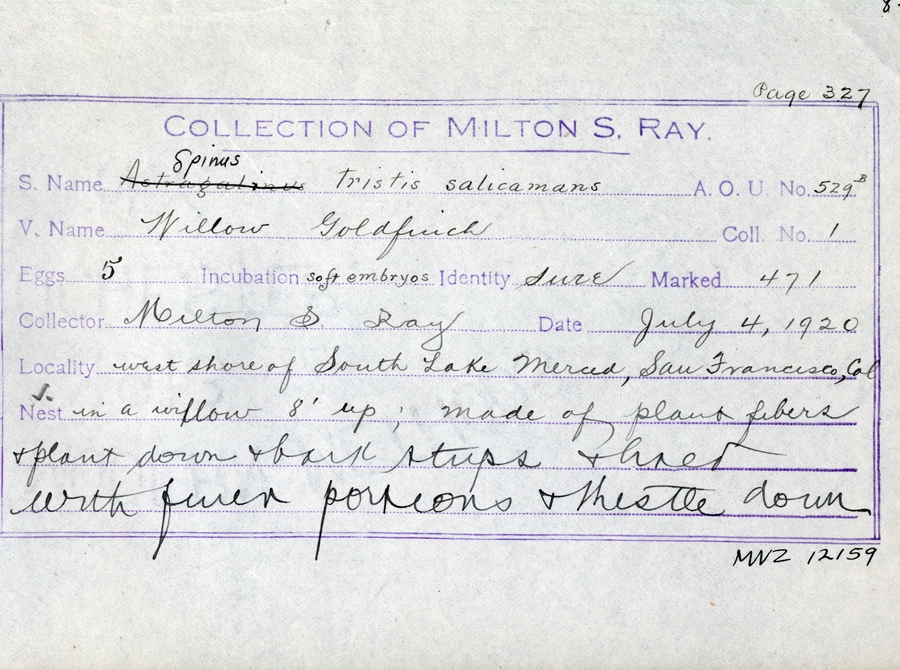 Page 327
COLLECTION OF MILTON S. RAY.
Spinus
S. Name Astragalinus tristis salicamans A. O. U. No. 529B
V. Name Willow Goldfinch Coll. No. 1
Eggs 5 Incubation soft embryos Identity sure Marked 471
Collector Milton S. Ray Date July 4, 1920
Locality west shore of South Lake Merced, San Francisco, Cal
Nest in a willow 8' up; made of plant fibers
& plant down & bark strips & lined
with finer portions & thistle down
MVZ 12159